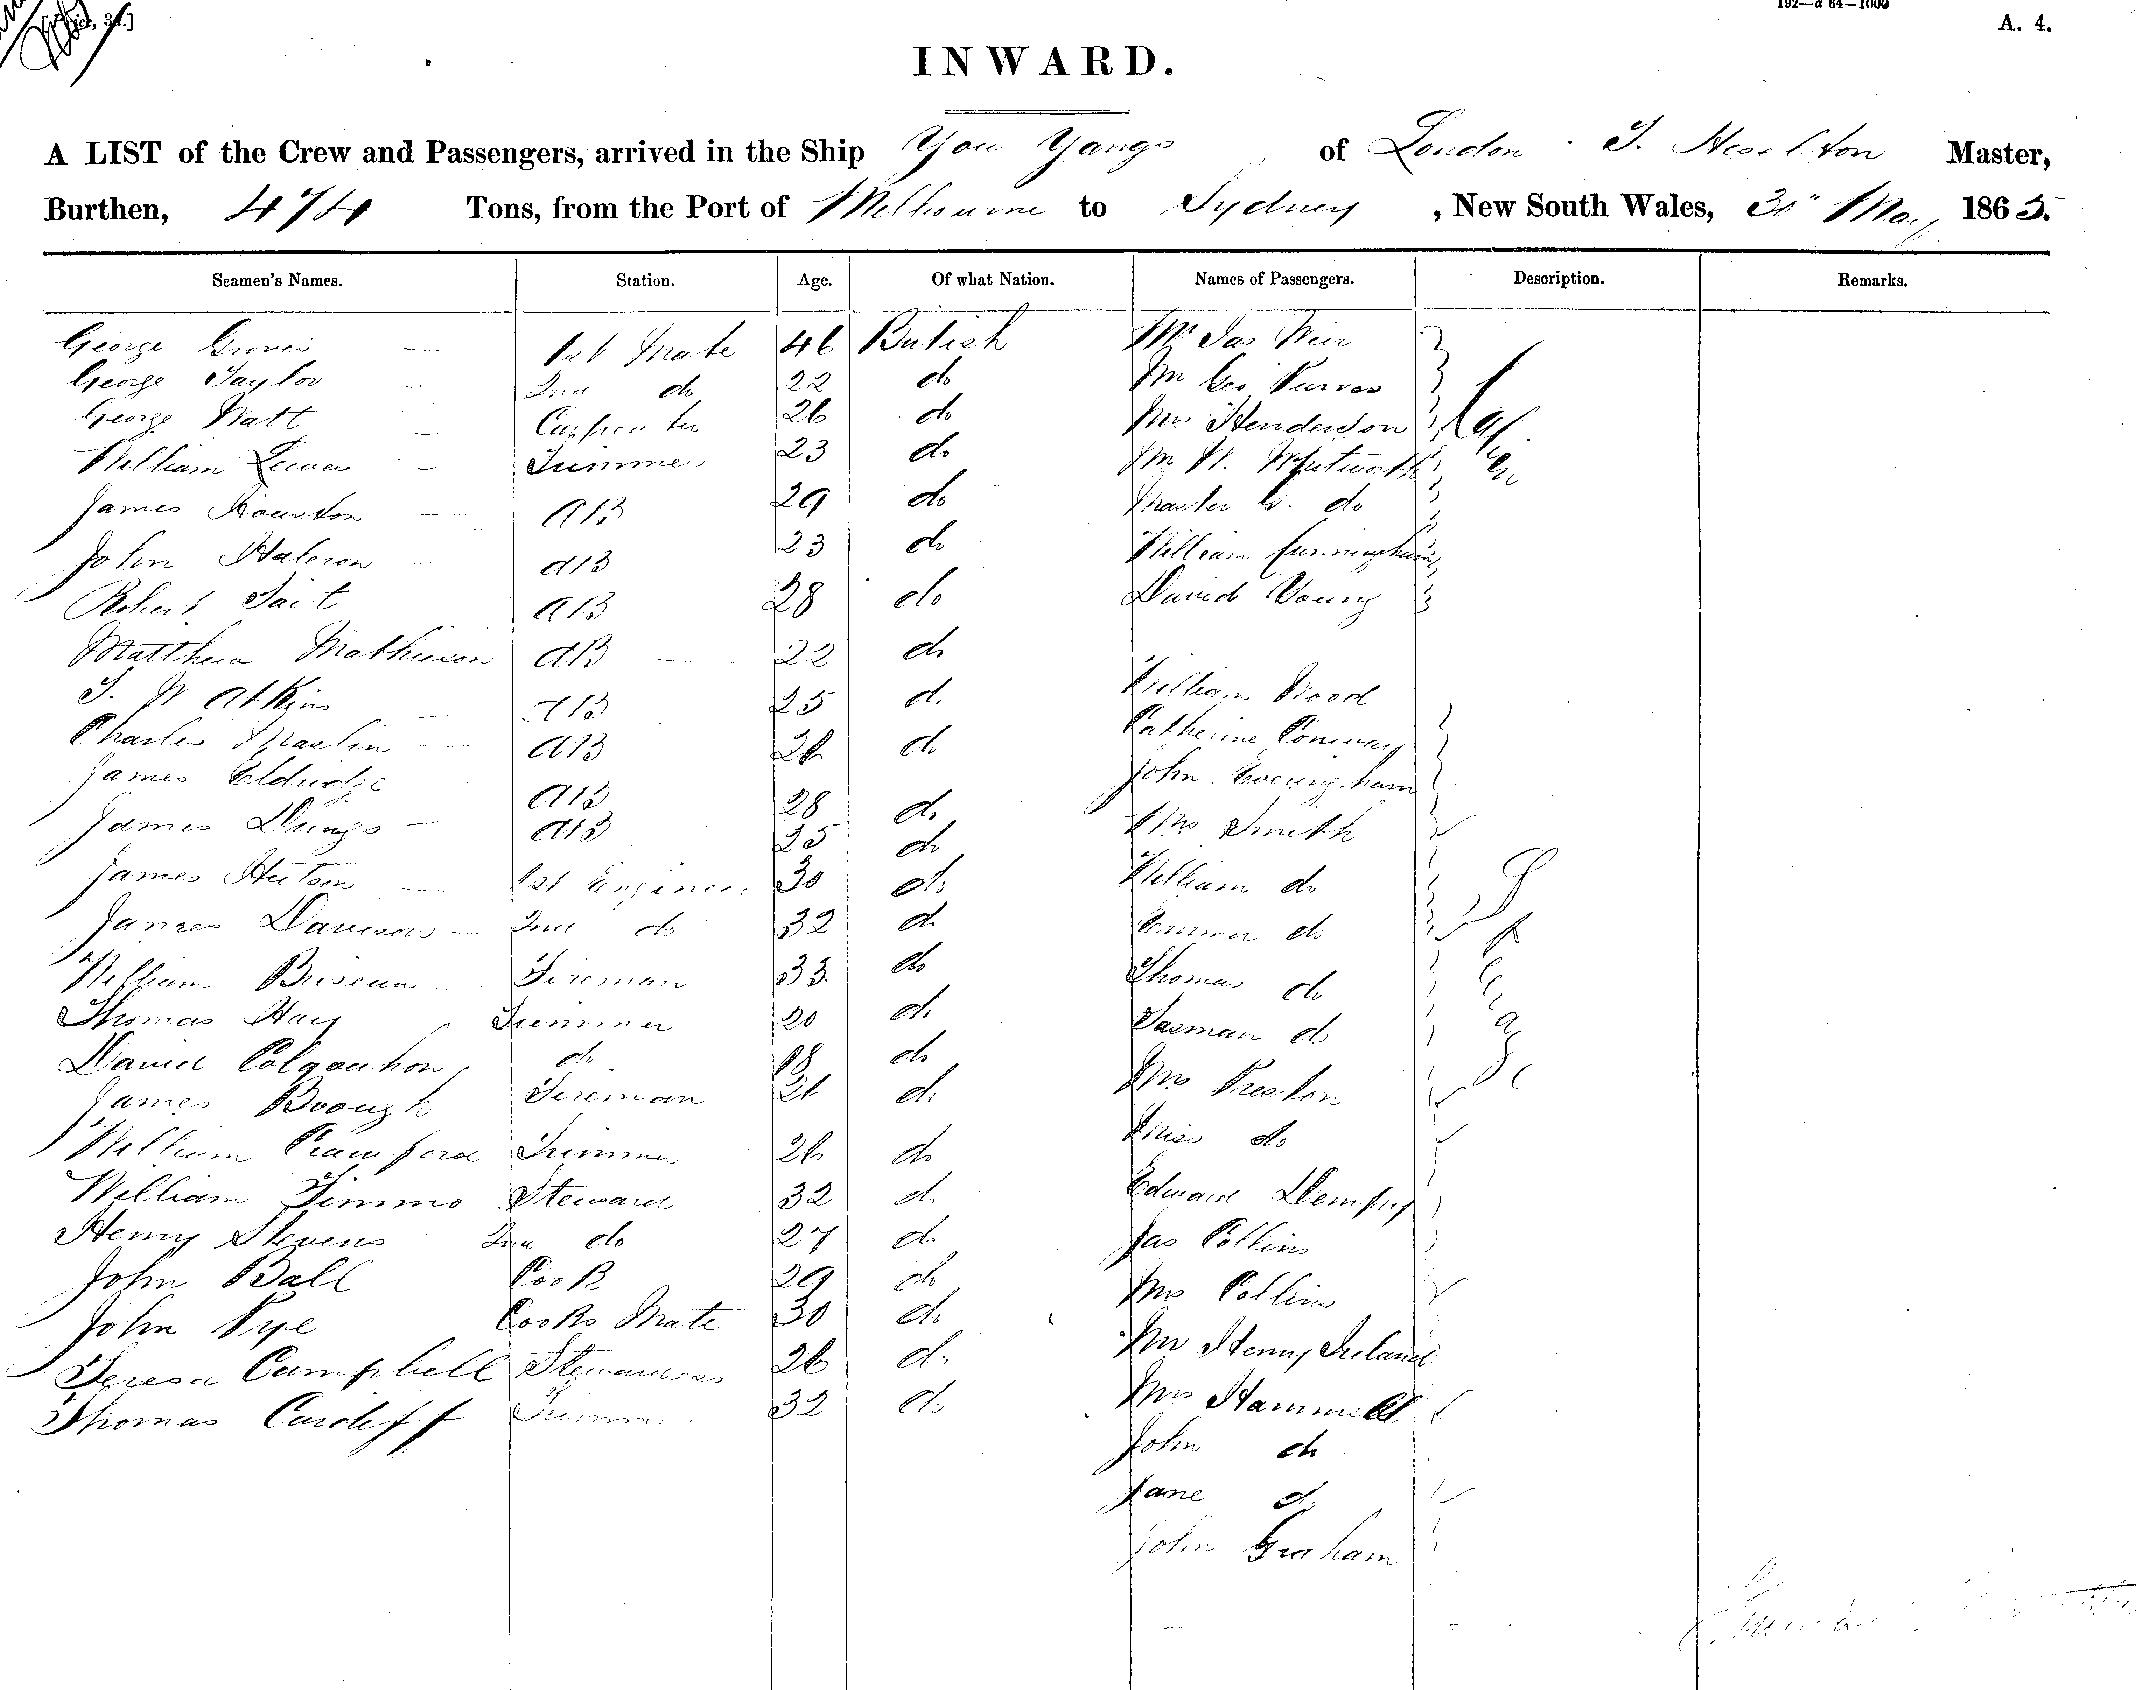 192—a 64—1000
A. 4.
INWARD.
A LIST of the Crew and Passengers, arrived in the Ship You Yangs of London T. Heselton Master,
Burthen, 474 Tons, from the Port of Melbourne to Sydney, New South Wales, 30" May 1865.
Seamen's Names. Station. Age. Of what Nation. Names of Passengers. Description. Remarks.
George 1st Mate 46 British Mr Jas Weir
George Taylor 2nd do 22 do Mr Geo Purves
George Watt Carpenter 26 do Mrs Henderson
William Trimmer 23 do Mr W. Wentworth
James Houston AB 29 do Master do
John Halcron AB 23 do William Cunningham
Robert Tait AB 28 do David Young
Matthew Mathieson AB 22 do
William Wood
J. W Atkins AB 25 do
Catherine Conway
Charles AB 26 do
John Eveingham
James Eldridge AB 28 do
Mrs Smith
James AB 25 do
James Hutson 1st Engineer 30 do William do
James Davison 2nd do 32 do Emma do
William Fireman 33 do Thomas do
Thomas Hay Trimmer 20 do Tasman do
David Colqouhon do 18 do
James Brough Fireman 21 do Mrs Preston
William Crawford Trimmer 26 do Miss do
William Timms Steward 32 do Edward Dempsey
Henry Stevens 2nd do 27 do Jas Collins
John Ball Cook 29 do Mrs Collins
John Pye Cooks Mate 30 do Mr Henry Ireland
Teresa Campbell Stewardess 26 do
Thomas Cardiff Trimmer 32 do Mrs Hammell
John do
Jane do
John Graham
Cabin
Steerage